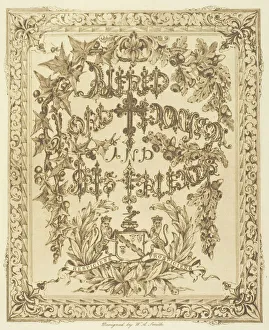 ALFRED
LORD TENNYSON
AND
HIS FRIENDS
Designed by